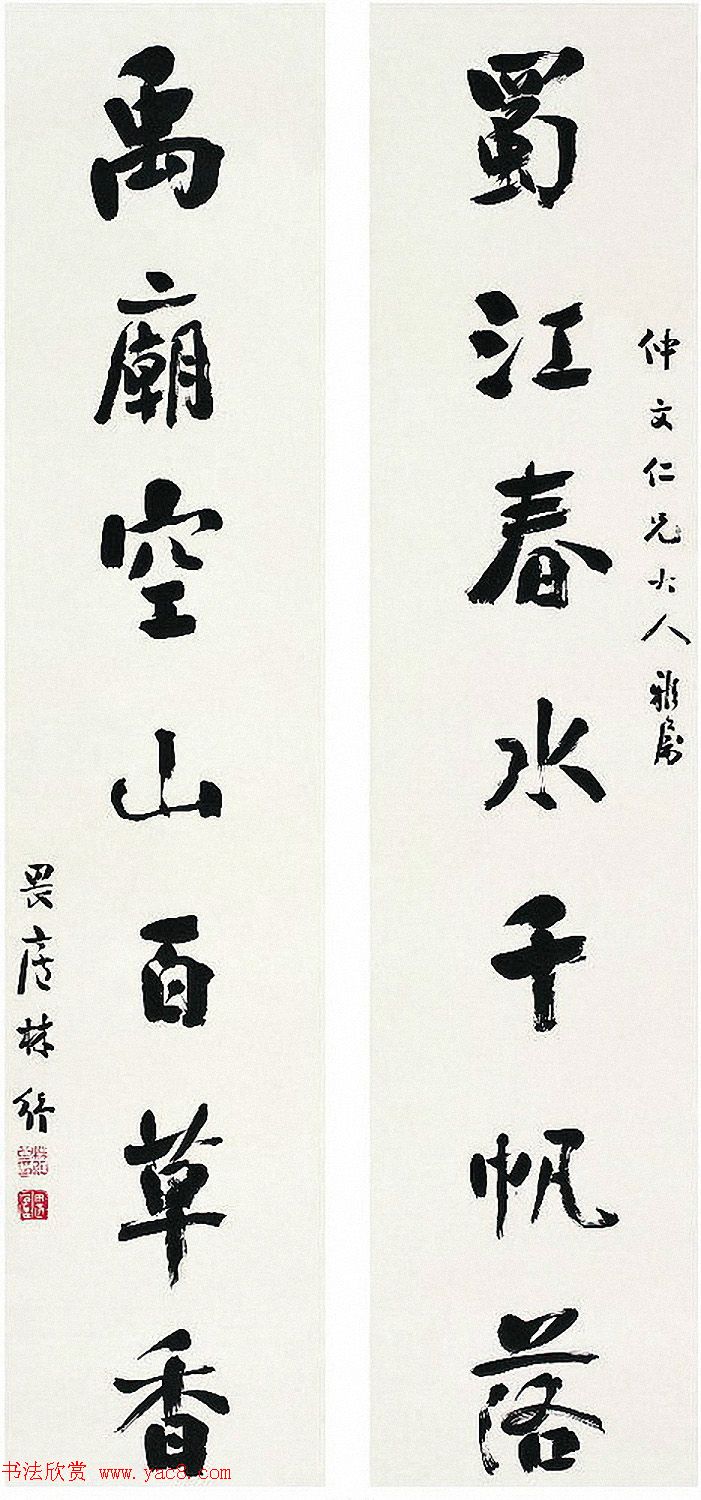 仲文仁兄大人雅属
蜀江春水千帆落
禹廟空山百草香
畏廬林紓
书法欣赏 www.yac8.com